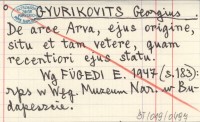 GYURIKOVITS Georgius.
De arce Arva, ejus origine,
situ et tam vetere, quam
recentiori ejus statu.
Wg FÜGEDI E. 1947 (s.183):
rps w Węg. Muzeum Nar. w Bu-
dapeszcie.